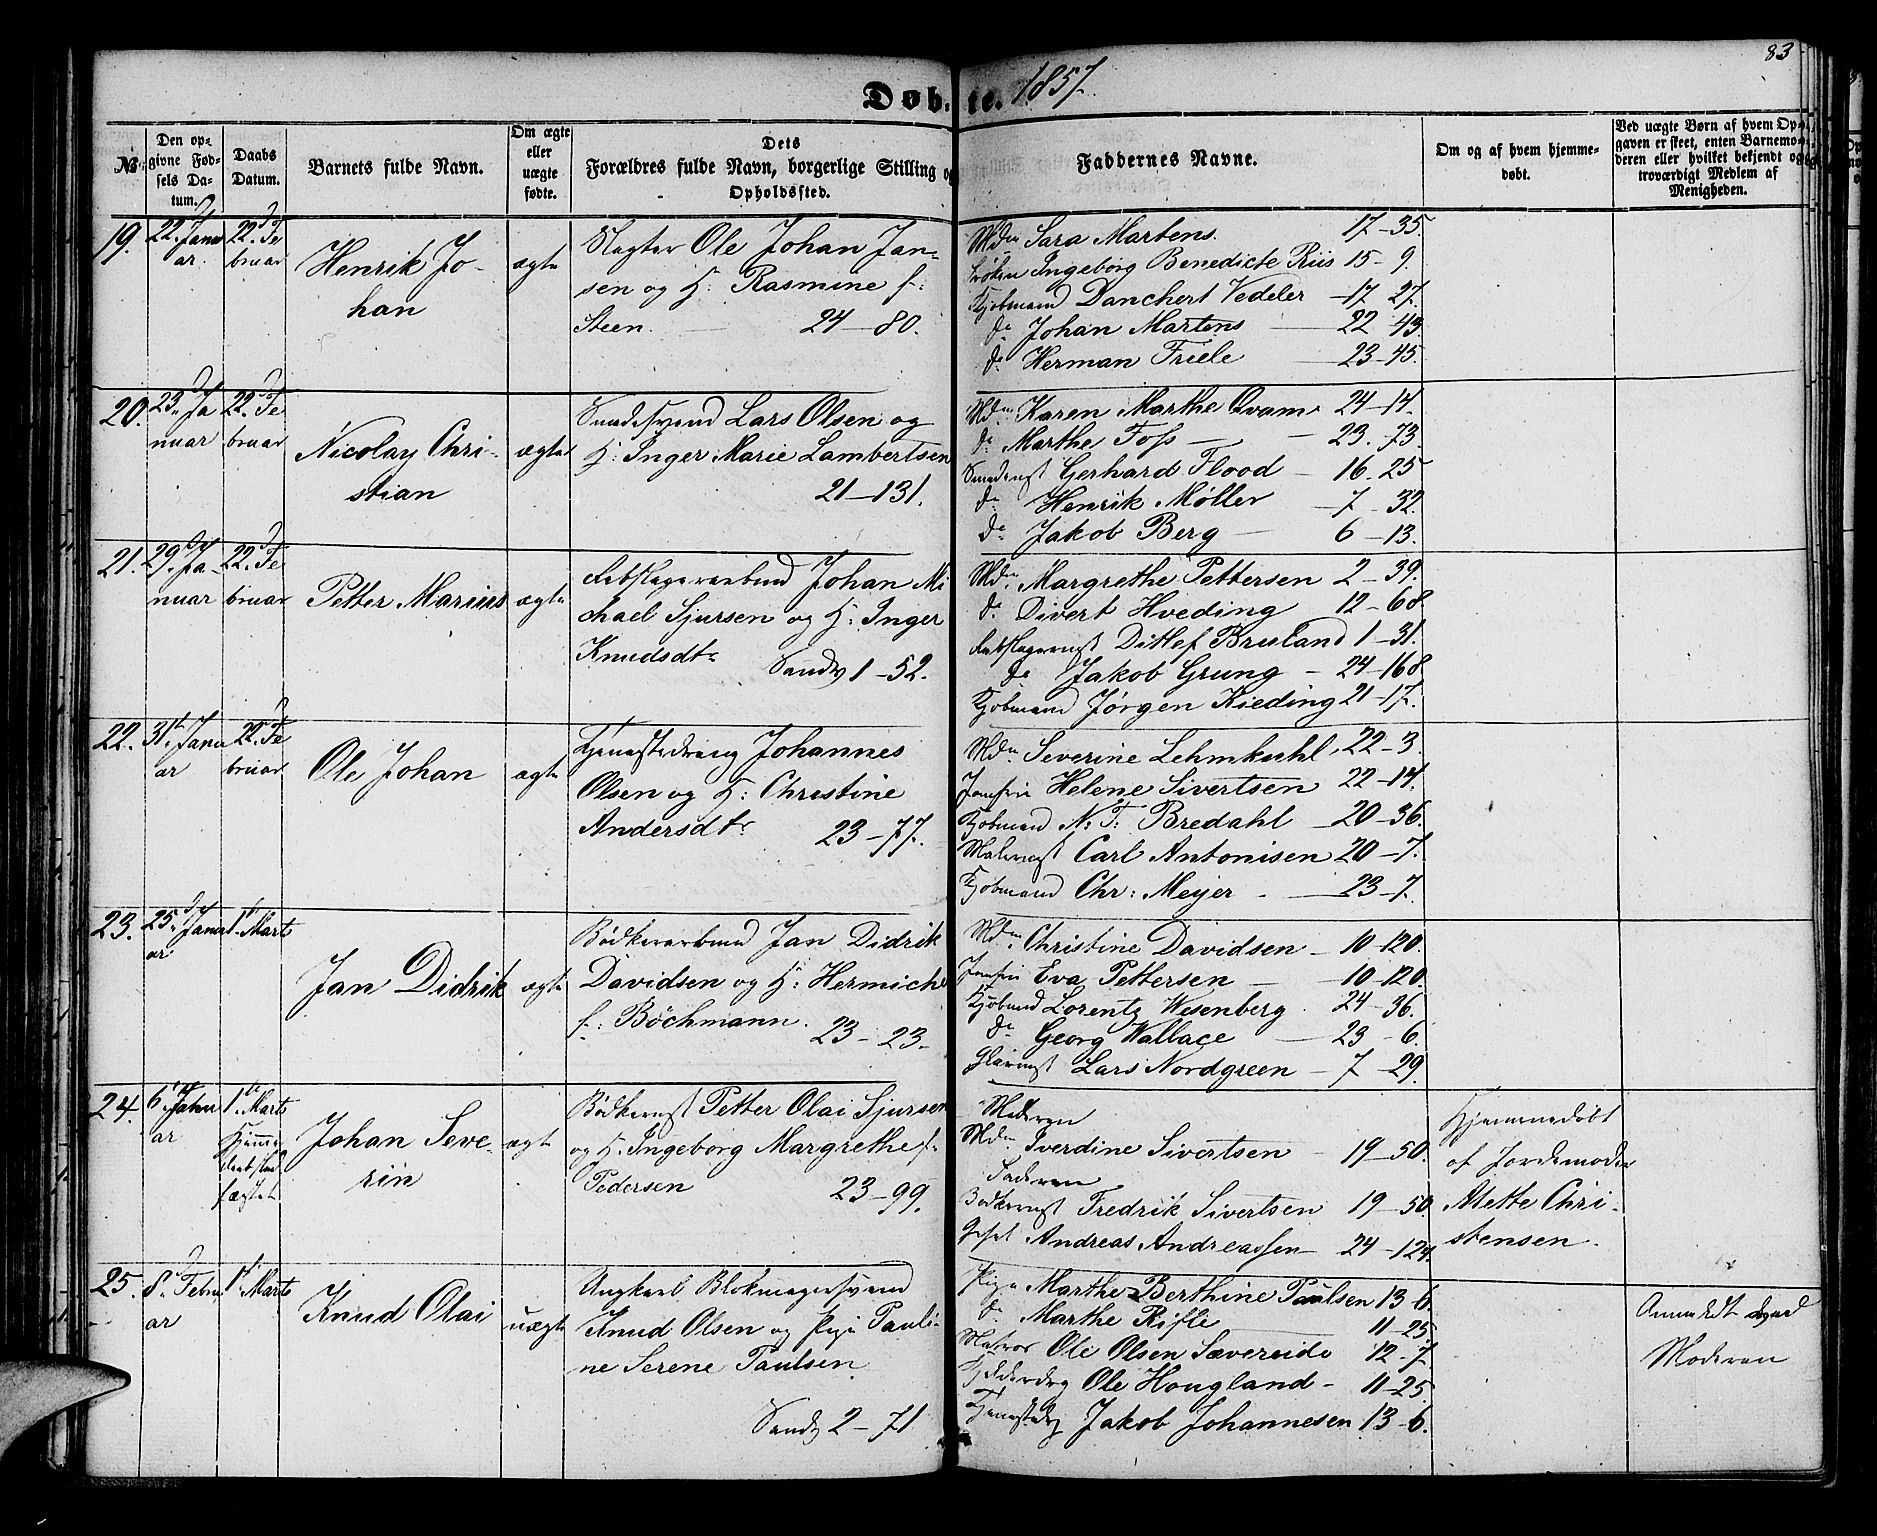 83
Døbte. 1857.
№
Den op-
givne Fød-
sels Da-
tum.
Daabs
Datum.
Barnets fulde Navn.
Om ægte
eller
uægte
fødte.
Dets
Forældres fulde Navn, borgerlige Stilling og
Opholdssted.
Faddernes Navne.
Om og af hvem hjemme-
døbt.
Ved uægte Børn af hvem Op-
gaven er skeet, enten Barnemo-
deren eller hvilket bekjendt og
troværdigt Medlem af
Menigheden.
19.
22d Janu
ar.
22d Fe
bruar
Henrik Jo-
han
ægte
Slagter Ole Johan Jan-
sen og H: Rasmine f:
Steen. 24-80.
Mdm Sara Martens. 17-35.
Frøken Ingeborg Benedicte Riis 15-9.
Kjøbmand Danchert Vedeler 17-27.
do Johan Martens 22-43
do Herman Friele 23-45.
20.
23d Ja
nuar
22d Fe
bruar
Nicolay Chri-
stian
ægte
Smedesvend Lars Olsen og
H: Inger Marie Lambertsen
21-131.
Mdm Karen Marthe Qvam 24-14.
do Marthe Foss 23-73.
Smedemst Gerhard Flood 16-25
do Henrik Møller 7-32.
do Jakob Berg 6-13.
21.
29d Ja-
nuar
22d Fe
bruar
Petter Marius
ægte
Rebslagerarbeid Johan Mi
chael Sjursen og H: Inger
Knudsdtr Sandv 1-52.
Mdm Margrethe Pettersen 2-39.
do Divert Hveding 12-68
Rebslagermst Ditlef Bruland 1-31.
do Jakob Grung 24-168
Kjøbmand Jørgen Kieding 21-17.
22.
31t Janu
ar
22d Fe
bruar
Ole Johan
ægte
Tjenestedreng Johannes
Olsen og H: Christine
Andersdtr 23-77.
Mdm Severine Lehmkuhl 22-3.
Jomfru Helene Sivertsen 22-14.
Kjøbmand N: T: Bredahl 20-36.
Malermst Carl Antonisen 20-7.
Kjøbmand Chr: Meyer 23-7.
23.
25d Janu
ar
1t Marts
Jan Didrik
ægte
Bødkerarbeid Jan Didrik
Davidsen og H: Hermiche
f: Böchmann. 23-23.
Mdm Christine Davidsen 10-120.
Jomfru Eva Pettersen 10-120.
Kjøbmd Lorentz Wesenberg 24-36.
do Georg Wallace 23-6.
Glarmst Lars Nordgreen 7-29.
24.
6t Janu
ar
1t Marts
Hjemme
fæstet
Johan Seve-
rin
ægte
Bødkermst Petter Olai Sjursen
og H. Ingeborg Margrethe f.
Pedersen 23-99.
Moderen
Mdm Iverdine Sivertsen 19-50.
Faderen
Bødkermst Fredrik Sivertsen 19-50.
Andreas Andreassen 24-124.
Hjemmedøbt
af Jordemoder
Mette Chri-
stensen.
25.
8d Febru
ar
1t Marts
Knud Olai
uægte
Ungkarl Blokmagersvend
Knud Olsen og Pige Pauli-
ne Serene Paulsen
Sandv 2-71
Pige Marthe Berthine Paulsen 13-6.
do Marthe Rifle 11-25
Matros Ole Olsen Sævereide 12-7.
Ole Hougland 11-25
Tjenestedrg Jakob Johannesen 13-6.
Anmeldt ved
Moderen